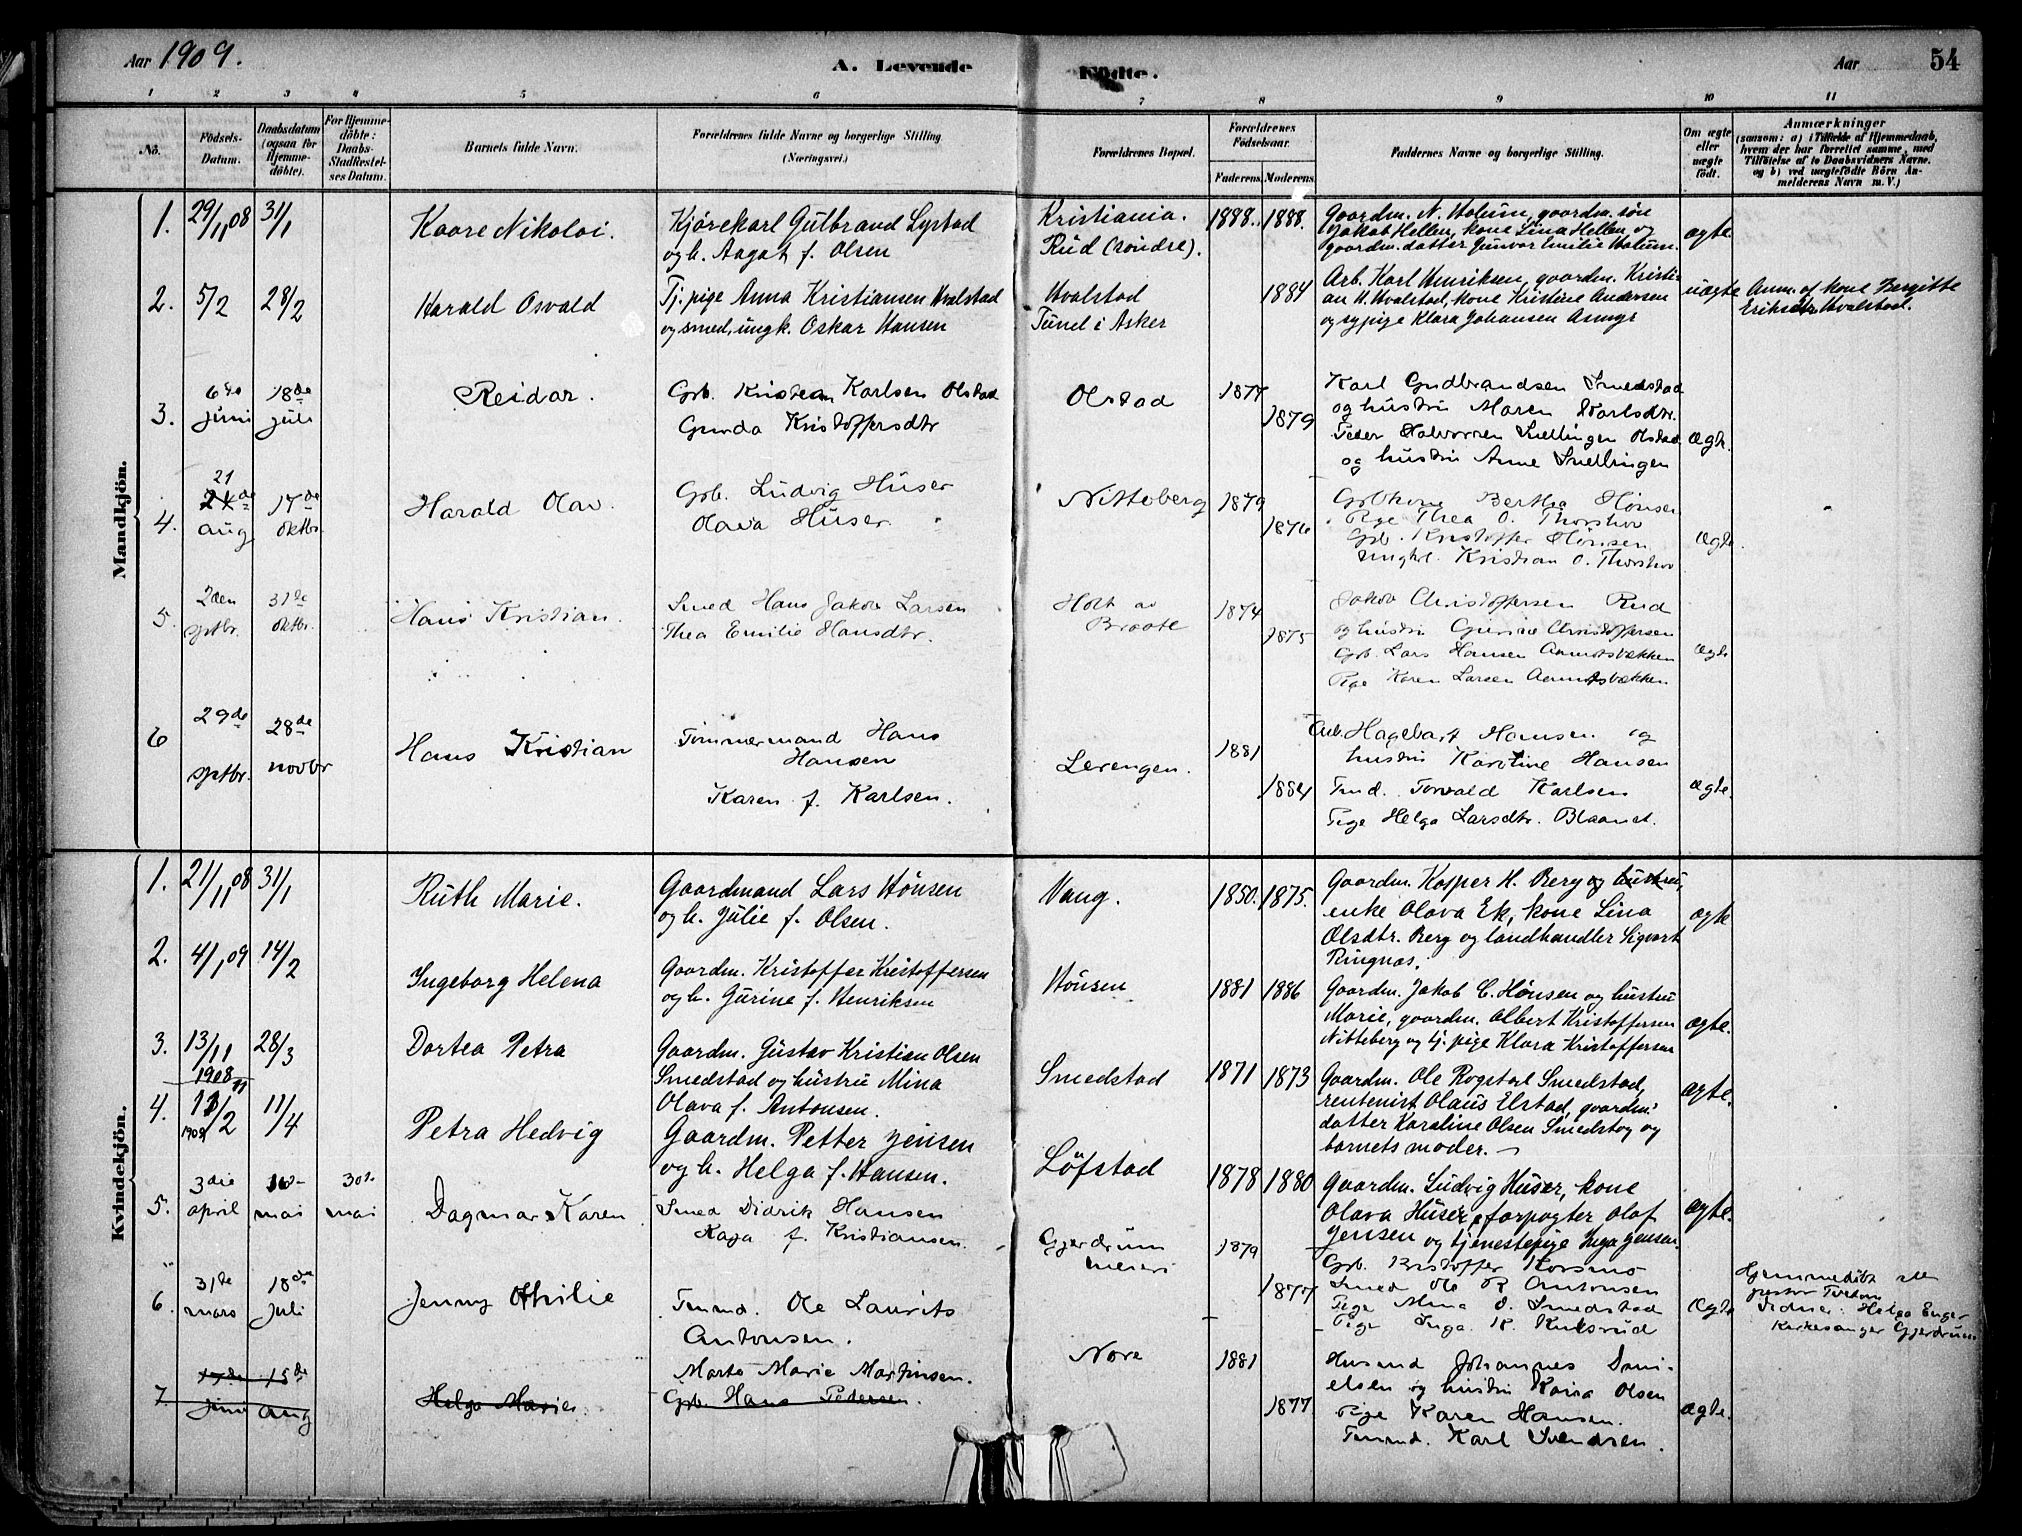 Aar 1909.
A. Levende Födte.
Aar 54
1 2 3 4 5 6 7 8 9 10 11
No.
Födsels-Datum.
Daabsdatum (ogsaa for Hjemmedöbte).
For Hjemmedöbte: Daabs-Stadfæstelses Datum.
Barnets fulde Navn.
Forældrenes fulde Navne og borgerlige Stilling.
(Næringsvei.)
Forældrenes Bopæl.
Forældrenes Födselsaar.
Faderens. Moderens.
Faddernes Navne og borgerlige Stilling.
Om ægte eller uægte födt.
Anmærkninger
(saasom: a) i Tilfælde af Hjemmedaab,
hvem der har forrettet samme, med
Tilföielse af to Daabsvidners Navne.
og b) ved uægtefödte Börn An-
melderens Navn m. V.)
Mandkjön.
1. 29/11 08 31/1 Kaare Nikolai. Kjørekarl Gulbrand Lystad
og h. Aagot f. Olsen
Kristiania.
Rud (søndre).
1888. 1888.
Gaardm. N. Holum, gaardm. søn
Jakob Hellen, kone Lina Hellen og
gaardm. datter Gunvor Emilie Holum.
ægte.
2. 5/2 28/2 Harald Osvald Tj. pige Anna Kristiansen Hvalstad
og smed, ungk. Oskar Hansen
Hvalstad
Tunel i Asker
1884
Arb. Karl Henriksen, gaardm. Kristi-
an H. Hvalstad, kone Kristine Andersen
og sypige Klara Johansen Asmyr
uægte Anm. af kone Bergitte
Eriksdtr. Hvalstad.
3. 6te juni 18de juli Reidar. Grb. Kristian Karlsen Olstad
Gunda Kristoffersdtr
Olstad 1877 1879
Karl Gudbrandsen Smedstad
og hustru Maren Karlsdtr.
Peder Halvorsen Snellingen Olstad
og hustru Anne Snellingen
ægte.
4. 21 aug 17de oktbr. Harald Olav Grb. Ludvig Huser
Olava Huser
Nitteberg 1879 1876
Grbkone Berthea Hønsen
Pige Thea O. Thorshov
Grb. Kristoffer Hønsen
Ungkl. Kristian O. Thorshov
ægte.
5. 2den septbr. 31te oktbr. Hans Kristian. Smed Hans Jakob Larsen
Thea Emilie Hansdtr.
Holt av
Braate
1874 1875
Jakob Christoffersen Rud
og hustru Gurine Christoffersen
Grb. Lars Hansen Aamotsbækken
Pige Karen Larsen Aamotsbækken
ægte
6 29de septbr. 28de novbr Hans Kristian Tømmermand Hans
Hansen
Karen f. Karlsen.
Lerengen. 1881 1884
Arb. Hagebart Hansen og
hustru Karoline Hansen
Tmd. Torvald Karlsen
Pige Helga Larsdtr. Blaand.
ægte.
Kvindekjön.
1. 21/11 08 31/1 Ruth Marie. Gaardmand Lars Hønsen
og h. Julie f. Olsen.
Vang. 1850. 1875.
Gaardm. Kasper H. Berg og hustru,
enke Olava Ek, kone Lina
Olsdtr. Berg og landhandler Sigvart
Ringnæs.
ægte
2. 4/1 09 14/2 Ingeborg Helena Gaardm. Kristoffer Kristoffersen
og h. Gurine f. Henriksen
Hønsen 1881 1886
Gaardm. Jakob C. Hønsen og hustru
Marie, gaardm. Albert Kristoffersen
Nitteberg og tj. pige Klara Kristoffersen
ægte.
3. 13/11 1908 28/3 Dortea Petra Gaardm. Gustav Kristian Olsen
Smedstad og hustru Mina
Olava f. Antonsen.
Smedstad 1871 1873
Gaardm. Ole Rogstad Smedstad,
rentenist Olaus Elstad, gaardm.
datter Karoline Olsen Smedstog og
barnets moder.
ægte.
4. 13/2 11/4 Petra Hedvig Gaardm. Petter Jensen
og h. Helga f. Hansen.
Løfstad 1878 1880
Gaardm. Ludvig Huser, kone
Olava Huser, forpagter Olaf
Jensen og tjenestepige Inga Jensen.
ægte.
5. 3die april mai 30te mai Dagmar Karen Smed Didrik Hansen
Kaja f. Kristiansen.
Gjerdrum
meieri
1879 1877
Grb. Kristoffer Korsmo
Smed Ole R. Antonsen
Pige Alma O. Smedstad
Pige Inga K. Kulsrud
ægte
Hjemmedøbt af
pastor Tvedten
Vidner: Helga Enger
Kirkesanger Gjerdrum
6. 31te mars 18de juli Jenny Othilie Tmmd. Ole Laurits
Antonsen.
Marte Marie Martinsen.
Nore 1881 1877
Husmd Johannes Dani-
elsen og hustru Kaisa Olsen
Pige Karen Hansen.
Tmmd. Karl Svendsen.
ægte.
7 17de juni 15de aug Helga Marie. Grb. Hans Pedersen.